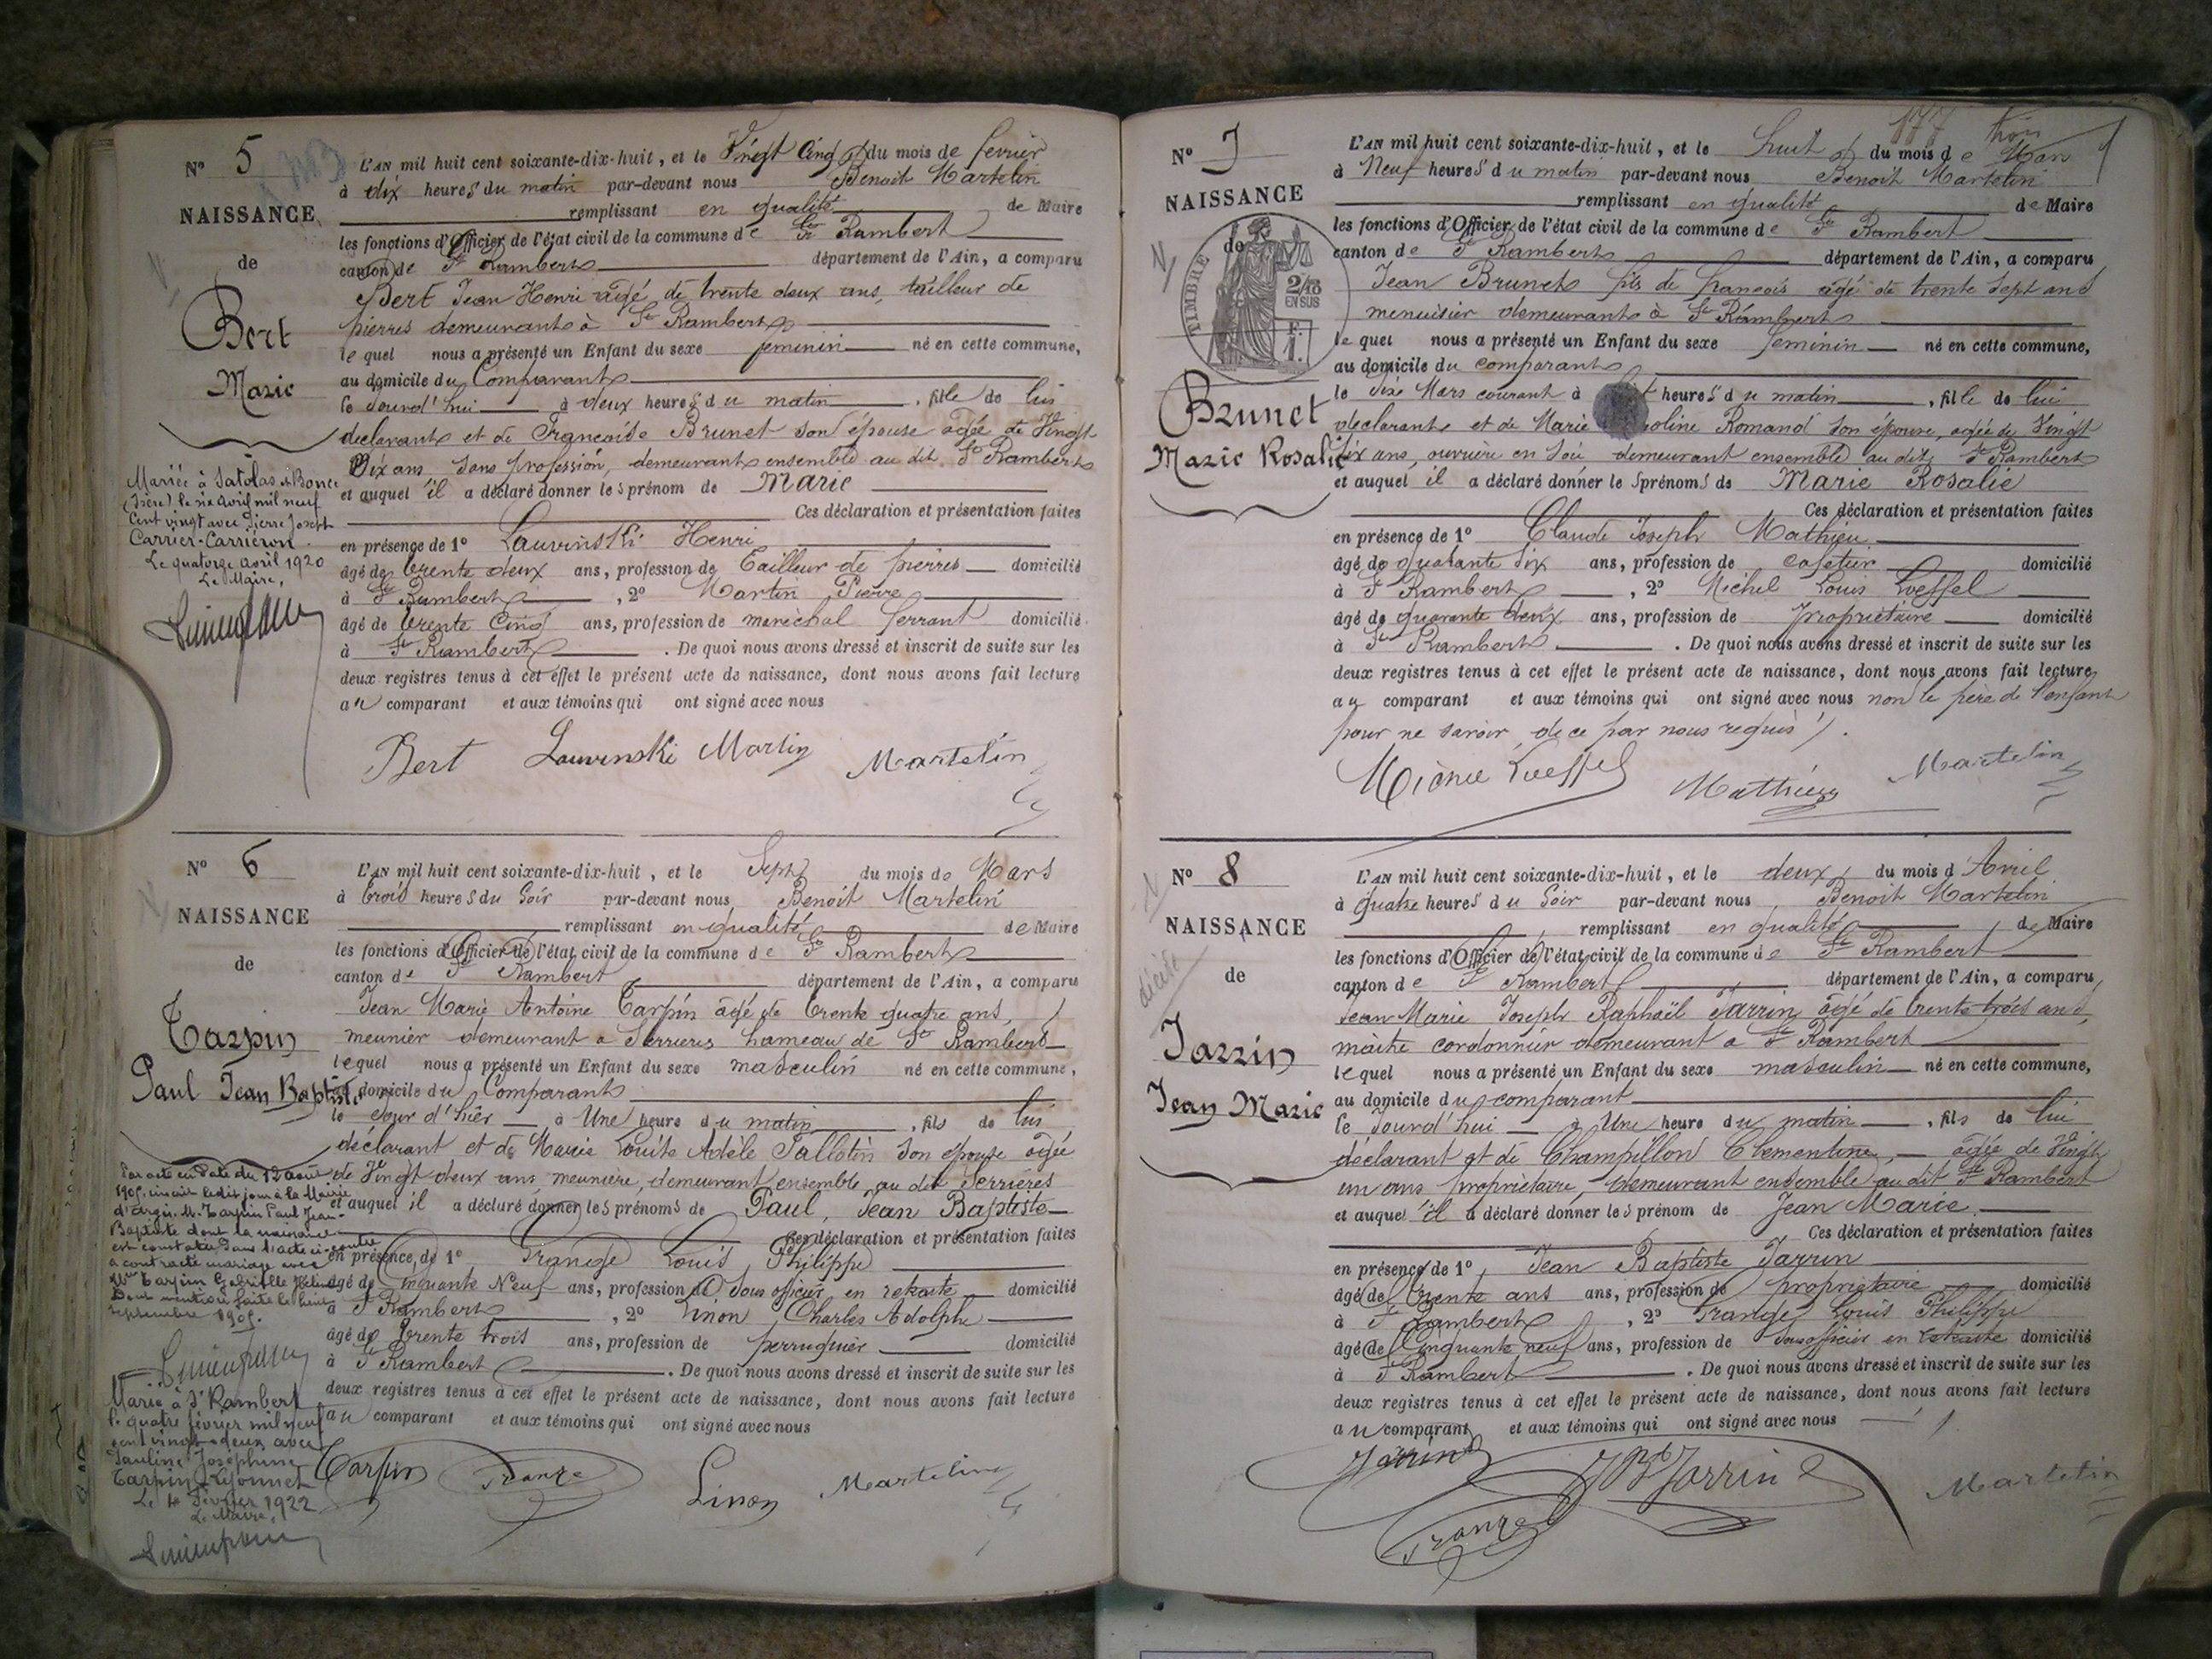 Nº 5
NAISSANCE
de
Bert
Marie
Mariée à Satolas et Bonce
(Isère) le six avril mil neuf
cent vingt avec Pierre Joseph
Carrier-Carriéron.
Le quatorze avril 1920
Le Maire,
L'AN mil huit cent soixante-dix-huit, et le Vingt Cinq du mois de fevrier
à dix heures du matin par-devant nous Benoit Martelin
remplissant en qualité de Maire
les fonctions d'Officier de l'état civil de la commune de St Rambert
canton de St Rambert département de l'Ain, a comparu
Bert Jean Henri agé de trente deux ans, tailleur de
pierres demeurant à St Rambert
lequel nous a présenté un Enfant du sexe feminin né en cette commune,
au domicile du Comparant
le Jourd'hui à deux heures du matin, fille de lui
declarant et de Francoise Brunet son épouse agée de Vingt
Six ans, sans profession, demeurant ensemble au dit St Rambert
et auquel il a déclaré donner les prénom de Marie
Ces déclaration et présentation faites
en présence de 1º Lauvinski Henri
âgé de trente deux ans, profession de Tailleur de pierres domicilié
à St Rambert, 2º Martin Pierre
âgé de trente Cinq ans, profession de maréchal ferrant domicilié
à St Rambert. De quoi nous avons dressé et inscrit de suite sur les
deux registres tenus à cet effet le présent acte de naissance, dont nous avons fait lecture
au comparant et aux témoins qui ont signé avec nous
Bert Lauvinski Martin Martelin
Nº 6
NAISSANCE
de
Tarpin
Paul Jean Baptiste
Par acte en date du 12 août
1905, inscrit ledit jour à la Mairie
d'Argis, M. Tarpin Paul Jean-
Baptiste dont la naissance
est constatée dans l'acte ci-contre
a contracté mariage avec
Mlle Tarpin Gabrielle Hélène
Dont mention faite le huit
septembre 1905.
Marié à St Rambert
le quatre février mil neuf
cent vingt-deux avec
Pauline Joséphine
Tarpin-Lyonnet
Le 4 Février 1922
Le Maire,
L'AN mil huit cent soixante-dix-huit, et le Sept du mois de Mars
à trois heures du Soir par-devant nous Benoit Martelin
remplissant en qualité de Maire
les fonctions d'Officier de l'état civil de la commune de St Rambert
canton de St Rambert département de l'Ain, a comparu
Jean Marie Antoine Tarpin âgé de trente quatre ans,
meunier demeurant à Serrieres hameau de St Rambert
lequel nous a présenté un Enfant du sexe masculin né en cette commune,
au domicile du Comparant
le Jour d'hier à Une heure du matin, fils de lui
déclarant et de Marie Louise Adèle Pallotin son épouse agée
de Vingt deux ans, meunière, demeurant ensemble au dit Serrières
et auquel il a déclaré donner les prénoms de Paul, Jean Baptiste
Ces déclaration et présentation faites
en présence de 1º Grange Louis Philippe
âgé de Cinquante Neuf ans, profession de Sous officier en retraite domicilié
à St Rambert, 2º Linon Charles Adolphe
âgé de trente trois ans, profession de perruquier domicilié
à St Rambert. De quoi nous avons dressé et inscrit de suite sur les
deux registres tenus à cet effet le présent acte de naissance, dont nous avons fait lecture
au comparant et aux témoins qui ont signé avec nous
Tarpin Grange Linon Martelin
177
Nº 7
NAISSANCE
de
TIMBRE
2/10
EN SUS
F.
1.
Brunet
Marie Rosalie
L'AN mil huit cent soixante-dix-huit, et le huit du mois de Mars
à Neuf heures du matin par-devant nous Benoit Martelin
remplissant en qualité de Maire
les fonctions d'Officier de l'état civil de la commune de St Rambert
canton de St Rambert département de l'Ain, a comparu
Jean Brunet fils de francois agé de trente sept ans
menuisier demeurant à St Rambert
lequel nous a présenté un Enfant du sexe feminin né en cette commune,
au domicile du comparant
le Six Mars courant à heures du matin, fille de lui
declarant et de Marie Romand son épouse, agée de Vingt
Six ans, ouvrière en Soie demeurant ensemble au dit St Rambert
et auquel il a déclaré donner les prénoms de Marie Rosalie
Ces déclaration et présentation faites
en présence de 1º Claude Joseph Mathieu
âgé de quarante six ans, profession de cafetier domicilié
à St Rambert, 2º Michel Louis Loeffel
âgé de quarante deux ans, profession de propriétaire domicilié
à St Rambert. De quoi nous avons dressé et inscrit de suite sur les
deux registres tenus à cet effet le présent acte de naissance, dont nous avons fait lecture
au comparant et aux témoins qui ont signé avec nous non le père de l'enfant
pour ne savoir, de ce par nous requis.
Michel Loeffel Mathieu Martelin
Nº 8
NAISSANCE
de
décédé
Jarrin
Jean Marie
L'AN mil huit cent soixante-dix-huit, et le deux du mois d'Avril
à quatre heures du Soir par-devant nous Benoit Martelin
remplissant en qualité de Maire
les fonctions d'Officier de l'état civil de la commune de St Rambert
canton de St Rambert département de l'Ain, a comparu
Jean Marie Joseph Raphaël Jarrin agé de trente trois ans,
maitre cordonnier demeurant à St Rambert
lequel nous a présenté un Enfant du sexe masculin né en cette commune,
au domicile du comparant
le Jourd'hui à Une heure du matin, fils de lui
déclarant et de Champillon Clementine, agée de Vingt
un ans propriétaire, demeurant ensemble au dit St Rambert
et auquel il a déclaré donner les prénom de Jean Marie
Ces déclaration et présentation faites
en présence de 1º Jean Baptiste Jarrin
âgé de trente ans ans, profession de propriétaire domicilié
à St Rambert, 2º Grange Louis Philippe
âgé de Cinquante neuf ans, profession de sous officier en retraite domicilié
à St Rambert. De quoi nous avons dressé et inscrit de suite sur les
deux registres tenus à cet effet le présent acte de naissance, dont nous avons fait lecture
au comparant et aux témoins qui ont signé avec nous
Jarrin JBte Jarrin Martelin
Grange